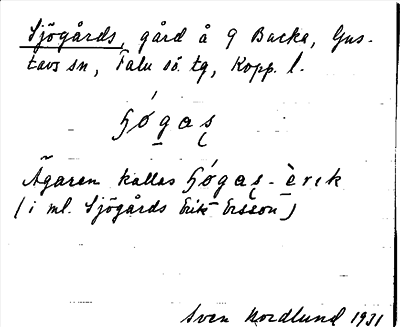 Sjögårds, gård å 9 Backa, Gus-
tavs sn, Falu sö. tg, Kopp. l.
Ägaren kallas
(i ml. Sjögårds Erik Ersson)
Sven Nordlund 1931